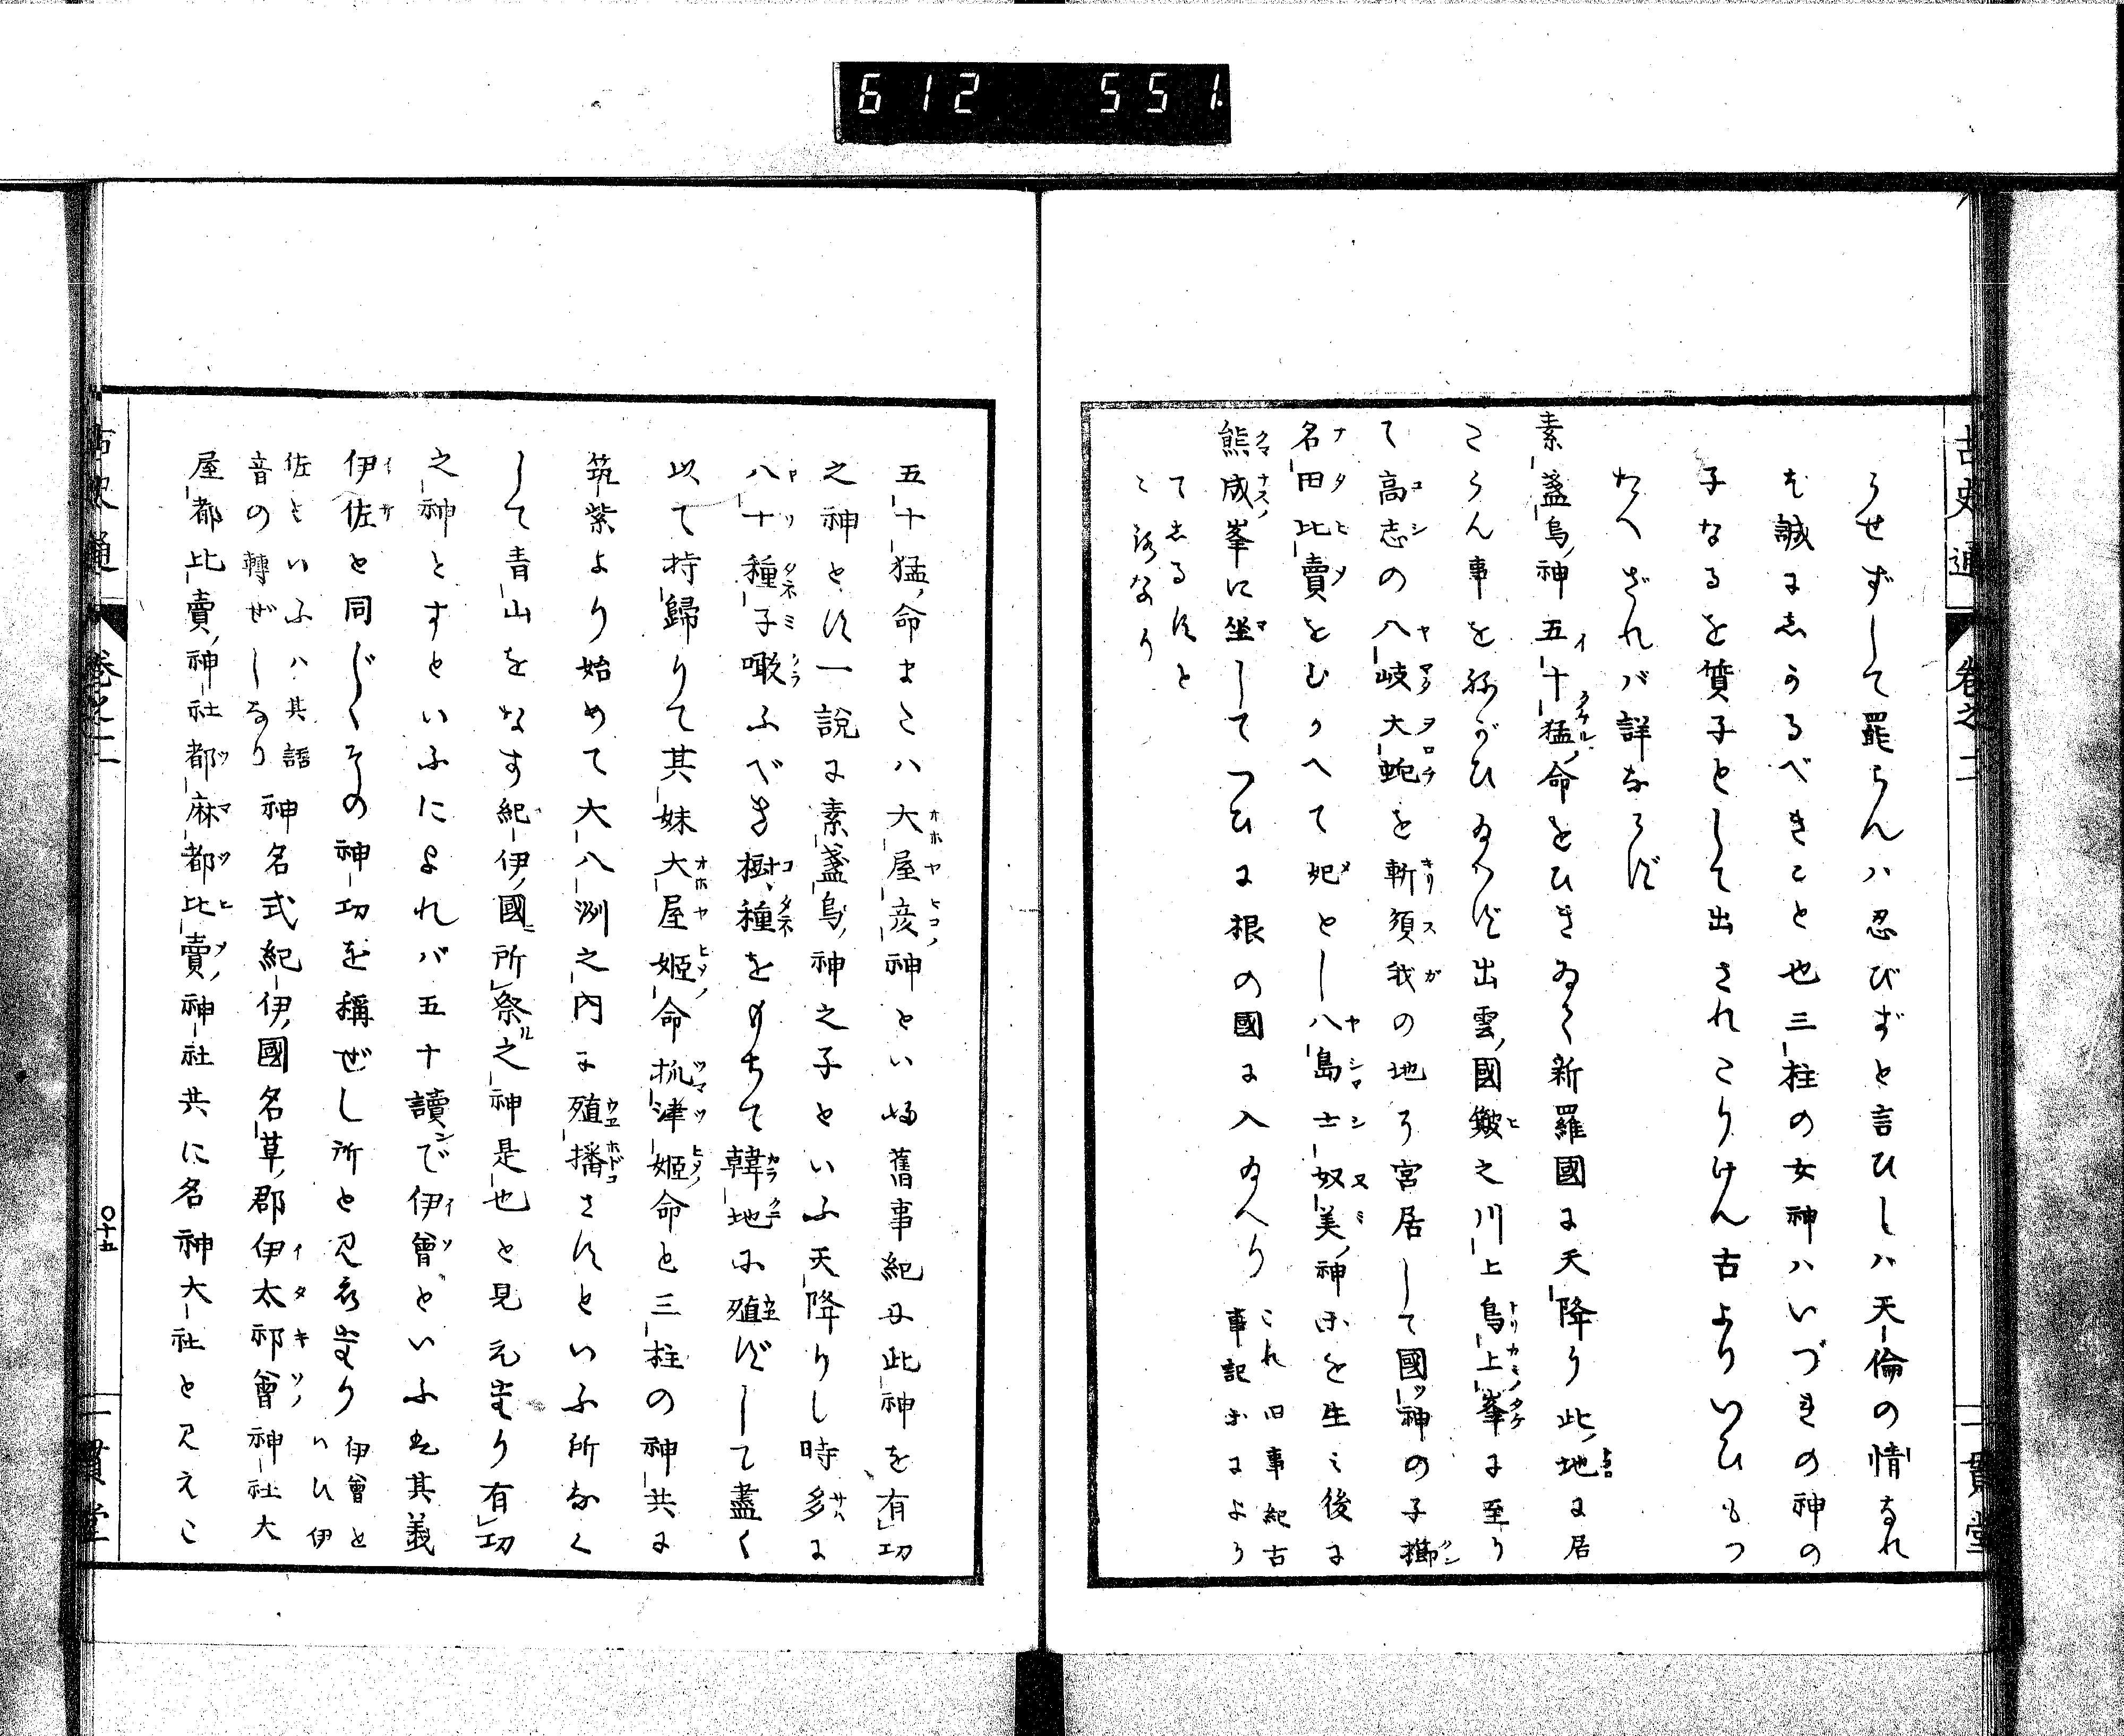 612 551.
古史通 卷之二 一貫堂
うせずして罷らんハ忍びずと言ひしハ天倫の情なれ
も誠にしかるべきこと也三柱の女神ハいづきの神の
子なるを質子として出されこりけん古よりいひもつ
たへざれバ詳ならず
素盞烏神五十猛命をひきゐて新羅國に天降り此地に居
こらん事をねがひ給ハず出雲國簸之川上鳥上峯に至り
て高志の八岐大蛇を斬須我の地に宮居して國神の子櫛
名田比賣をむかへて妃とし八島士奴美神等を生ミ後に
熊成峯に坐してつひに根の國に入給へり これ旧事紀古
事記等により
てしるすと
こ路なり
五十猛命またハ大屋彦神といふ舊事紀に此神を有功
之神とす一説に素盞烏神之子といふ天降りし時多に
八十種子噉ふべき樹種をもちて韓地に殖ずして盡く
以て持歸りて其妹大屋姫命抓津姫命と三柱の神共に
筑紫より始めて大八洲之内に殖播さすといふ所なく
して青山をなす紀伊國所祭之神是也と見え堂り有功
之神とすといふによれバ五十讀で伊曾といふも其義
伊佐と同じくその神功を稱ぜし所と見え堂り 伊曾と
いひ伊
佐といふハ其語
音の轉ぜしなり 神名式紀伊國名草郡伊太祁曾神社大
屋都比賣神社都麻都比賣神社共に名神大社と見えこ
古史通 卷之二 〇十五 一貫堂